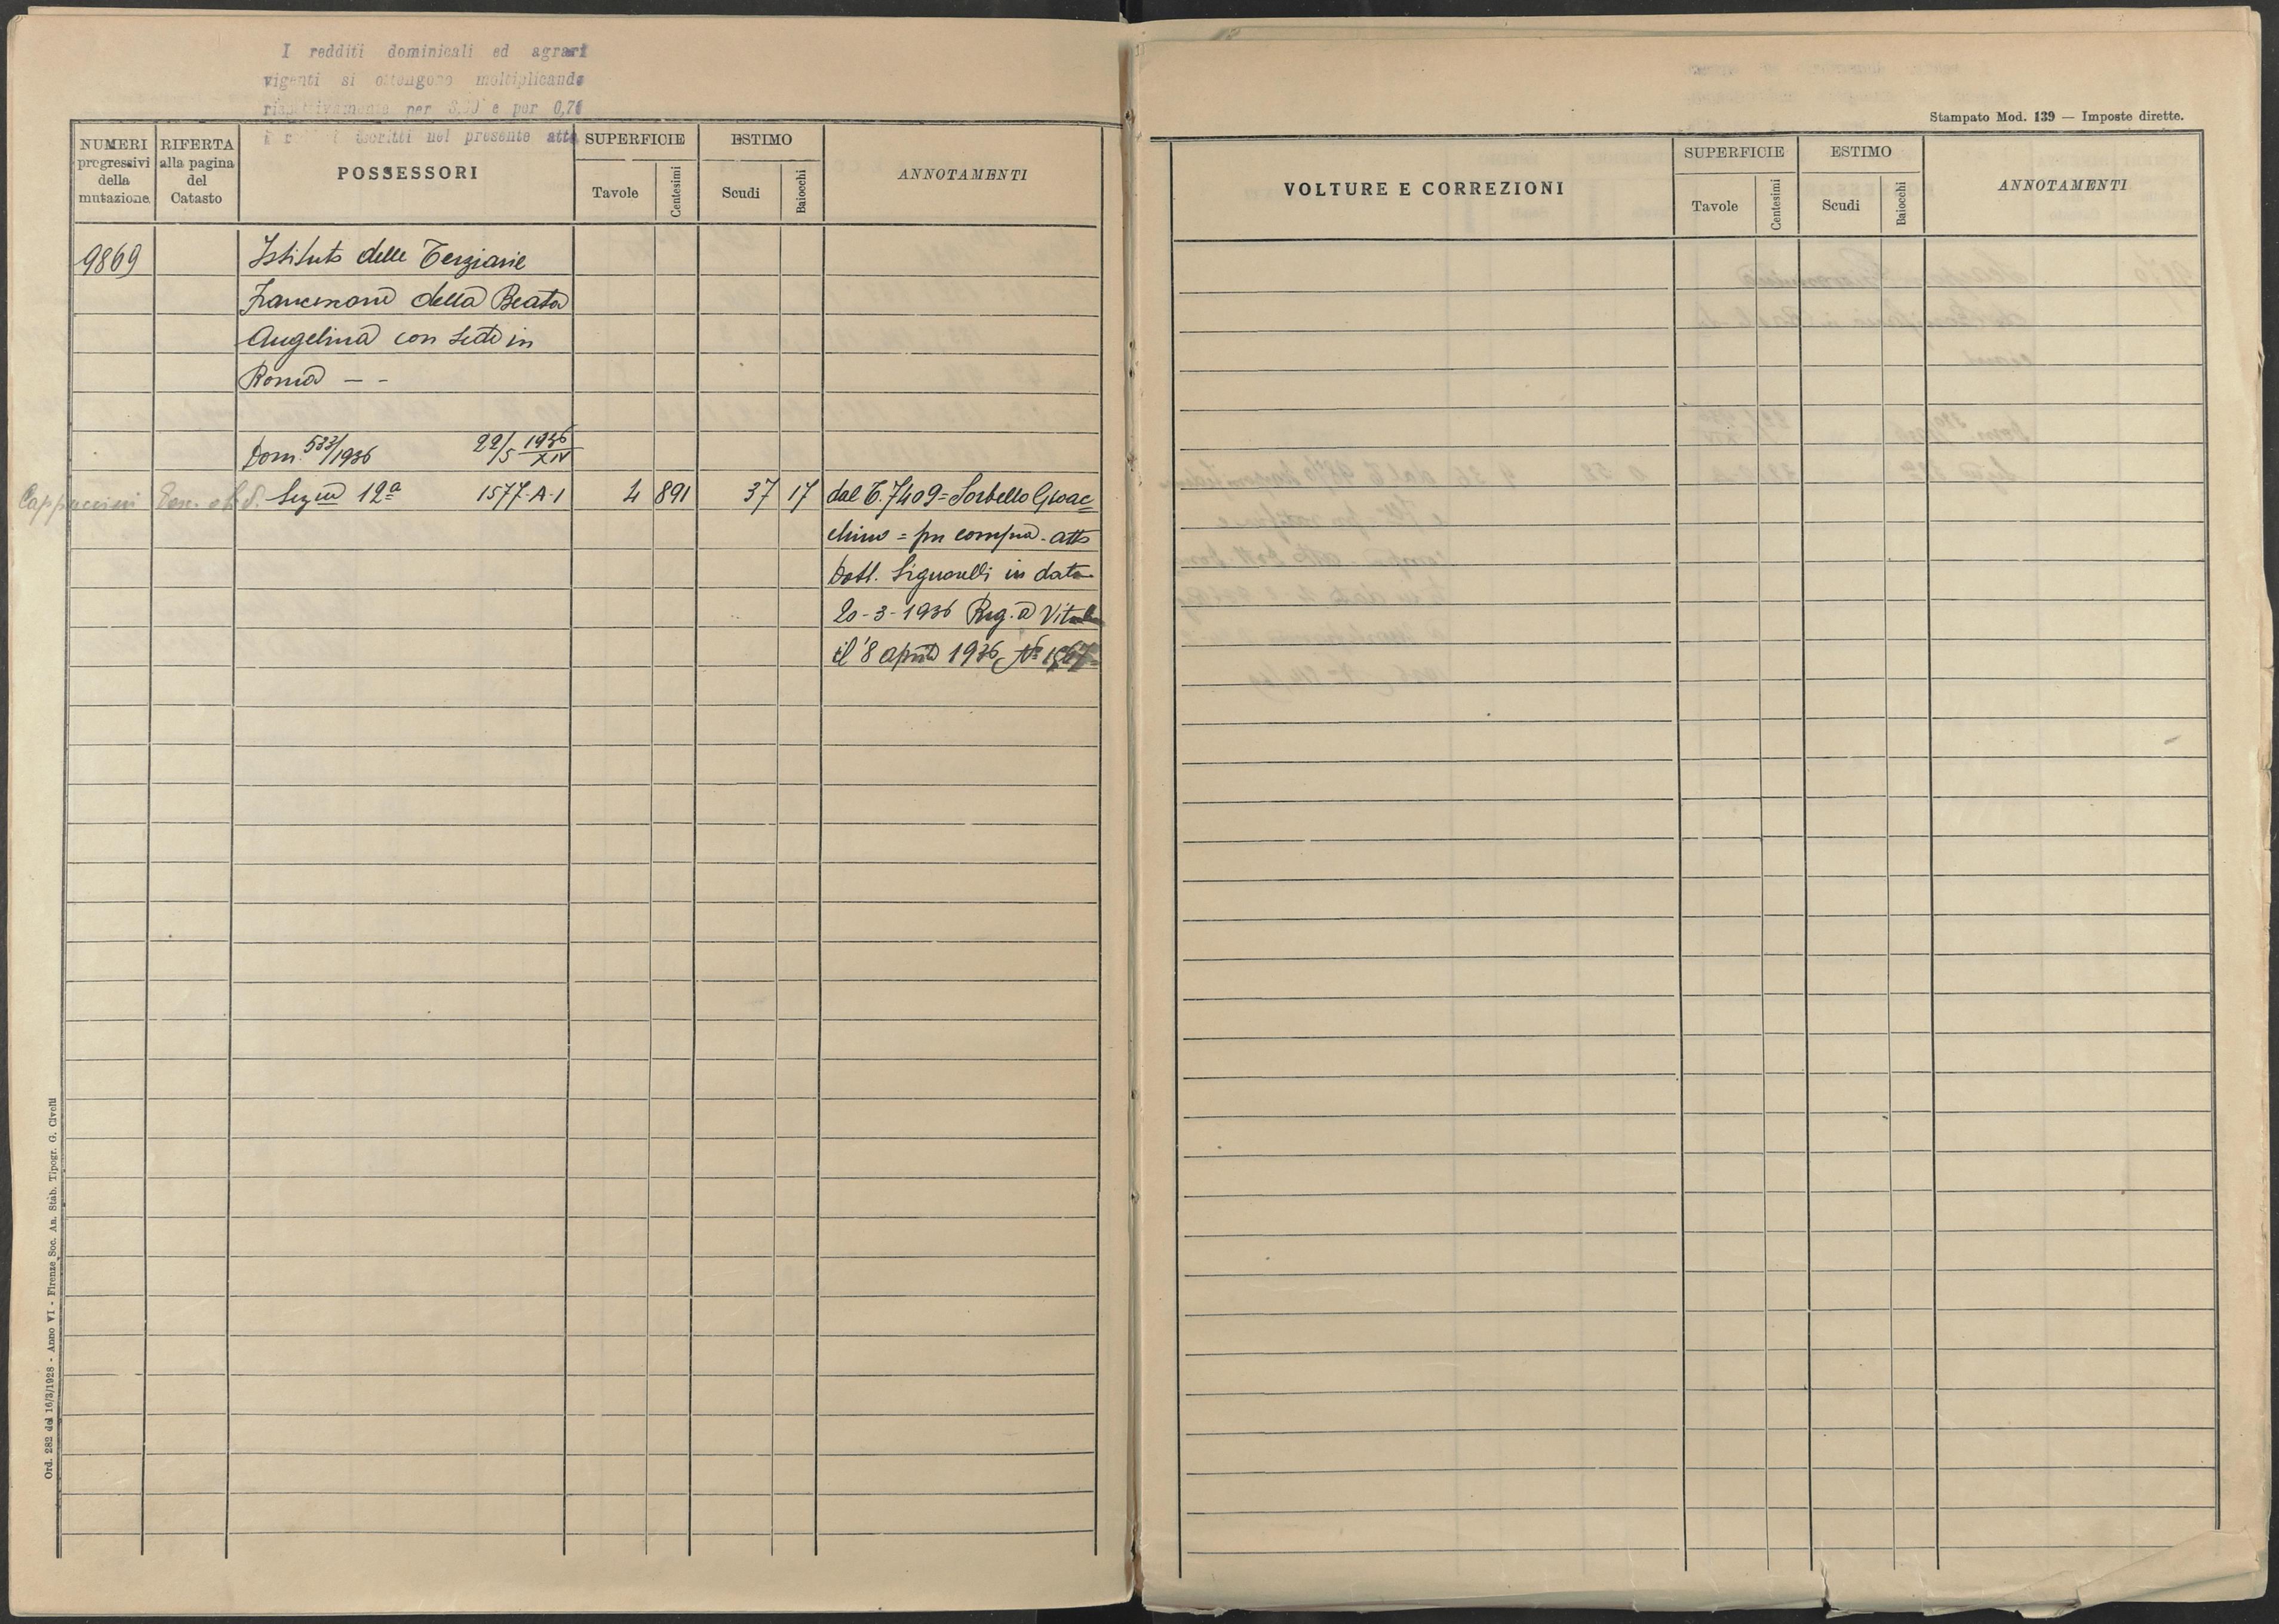 I redditi dominicali ed agrari
vigenti si ottengono moltiplicando
rispettivamente per e per 0,70
i redditi iscritti nel presente atto
NUMERI
progressivi
della
mutazione
RIFERTA
alla pagina
del
Catasto
POSSESSORI
SUPERFICIE
Tavole
Centesimi
ESTIMO
Scudi
Baiocchi
ANNOTAMENTI
9869
Istituto delle Terziarie
Francescane della Beata
Angelina con sede in
Roma - -
Dom. 533/1936 22/5 1936 XIV
Cappuccini Sezne 12ª 1577-A-1 4 891 37 17 dal T. 7409 = Sorbello Gioac=
chino = per compra - atto
Dott. Signorelli in data
20-3-1936 Reg. a Viterbo
il 8 aprile 1936 Nº
Ord. 282 del 16/3/1928 - Anno VI - Firenze, Soc. An. Stab. Tipogr. G. Civelli
Stampato Mod. 139 — Imposte dirette.
VOLTURE E CORREZIONI
SUPERFICIE
Tavole
Centesimi
ESTIMO
Scudi
Baiocchi
ANNOTAMENTI